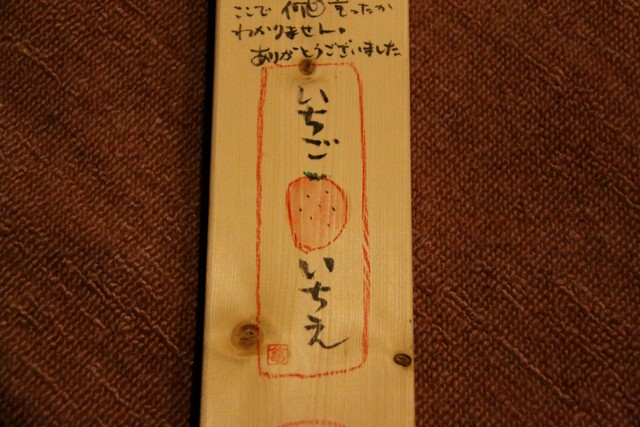 ここで 何回 言ったか
わかりません。
ありがとうございました
いちご
いちえ